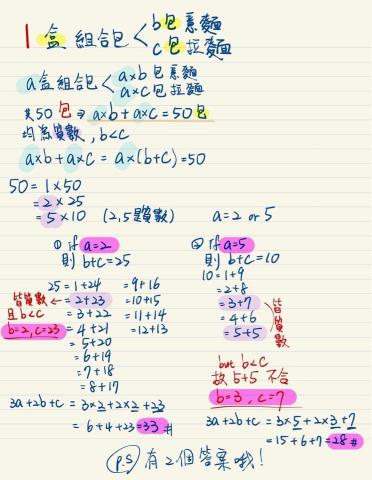 1盒組合包 < b包烏麵
c包拉麵
a盒組合包 < a×b包烏麵
a×c包拉麵
共50包 ⇒ a×b+a×c=50包
均為質數, b<c
a×b+a×c = a×(b+c)=50
50=1×50
=2×25
=5×10 (2,5是質數) a=2 or 5
① if a=2
則 b+c=25
25=1+24 =9+16
皆質數 ← =2+23 =10+15
且b<c =3+22 =11+14
b=2, c=23 =4+21 =12+13
=5+20
=6+19
=7+18
=8+17
3a+2b+c = 3×2+2×2+23
=6+4+23=33 #
② if a=5
則 b+c=10
10=1+9
=2+8
=3+7
=4+6
=5+5
皆質數
but b<c
故 5+5 不合
b=3, c=7
3a+2b+c = 3×5+2×3+7
=15+6+7=28 #
P.S 有2個答案哦!